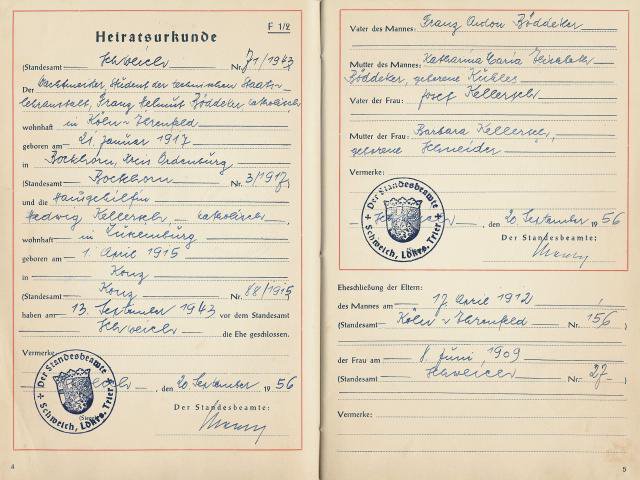 F 1/2
Heiratsurkunde
(Standesamt Schweich Nr. 71/1943
Der Wachtmeister, Student der technischen Staats-
lehranstalt, Franz Helmut Böddeker, katholisch
wohnhaft in Köln-Ehrenfeld
geboren am 21. Januar 1917
in Bockhorn, Kreis
(Standesamt Bockhorn Nr. 3/1917)
und die Hausgehilfin
Hedwig Kellersch, katholisch
wohnhaft in Luxemburg
geboren am 1. April 1915
in Konz
(Standesamt Konz Nr. 88/1915
haben am 13. September 1943 vor dem Standesamt
Schweich die Ehe geschlossen.
Vermerke:
Schweich, den 20. September 1956
Der Standesbeamte
Schweich, Ldkrs. Trier
(Siegel)
Der Standesbeamte:
4
Vater des Mannes: Franz Anton Böddeker
Mutter des Mannes: Katharina Maria Elisabeth
Böddeker, geborene
Vater der Frau: Josef Kellersch
Mutter der Frau: Barbara Kellersch,
geborene Schneider
Vermerke:
Der Standesbeamte
Schweich, Ldkrs. Trier
Schweich, den 20. September 1956
Der Standesbeamte:
Eheschließung der Eltern:
des Mannes am 17. April 1912
(Standesamt Köln-Ehrenfeld Nr. 156)
der Frau am 8. Juni 1909
(Standesamt Schweich Nr. 27)
Vermerke:
5